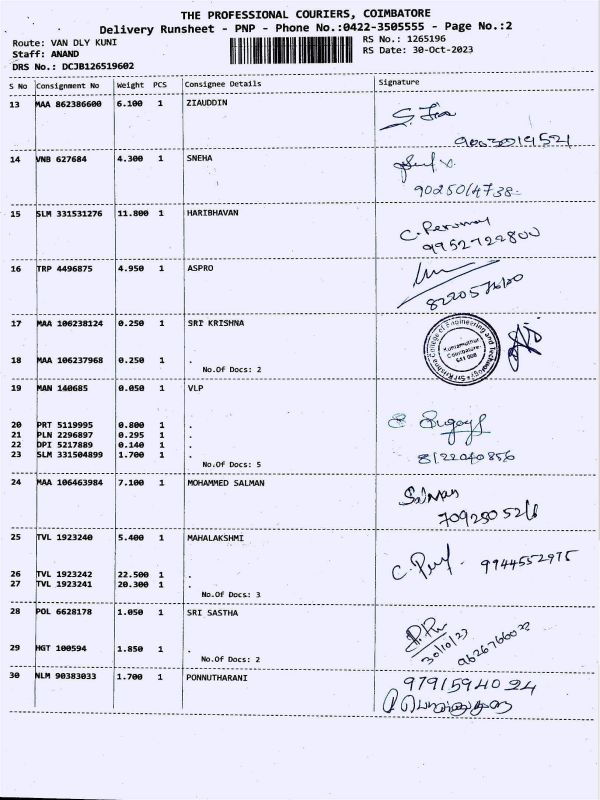 THE PROFESSIONAL COURIERS, COIMBATORE
Delivery Runsheet - PNP - Phone No.:0422-3505555 - Page No.:2
Route: VAN DLY KUNI
RS No.: 1265196
Staff: ANAND
RS Date: 30-Oct-2023
DRS No.: DCJB126519602
S No Consignment No Weight PCS Consignee Details Signature
13 MAA 862386600 6.100 1 ZIAUDDIN
9003019521
14 VNB 627684 4.300 1 SNEHA
9025014738
15 SLM 331531276 11.800 1 HARIBHAVAN
C. Perumay
9952722800
16 TRP 4496875 4.950 1 ASPRO
17 MAA 106238124 0.250 1 SRI KRISHNA
Sri Krishna College of Engineering and Technology
Kuniamuthur
Coimbatore
641 008
18 MAA 106237968 0.250 1 .
No.Of Docs: 2
19 MAN 140685 0.050 1 VLP
20 PRT 5119995 0.800 1 .
21 PLN 2296897 0.295 1 .
22 DPI 5217889 0.140 1 .
23 SLM 331504899 1.700 1 .
8122040856
No.Of Docs: 5
24 MAA 106463984 7.100 1 MOHAMMED SALMAN
Salman
25 TVL 1923240 5.400 1 MAHALAKSHMI
9944552975
26 TVL 1923242 22.500 1 .
27 TVL 1923241 20.300 1 .
No.Of Docs: 3
28 POL 6628178 1.050 1 SRI SASTHA
30/10/23
29 HGT 100594 1.850 1 .
No.Of Docs: 2
30 NLM 90383033 1.700 1 PONNUTHARANI
9791594024